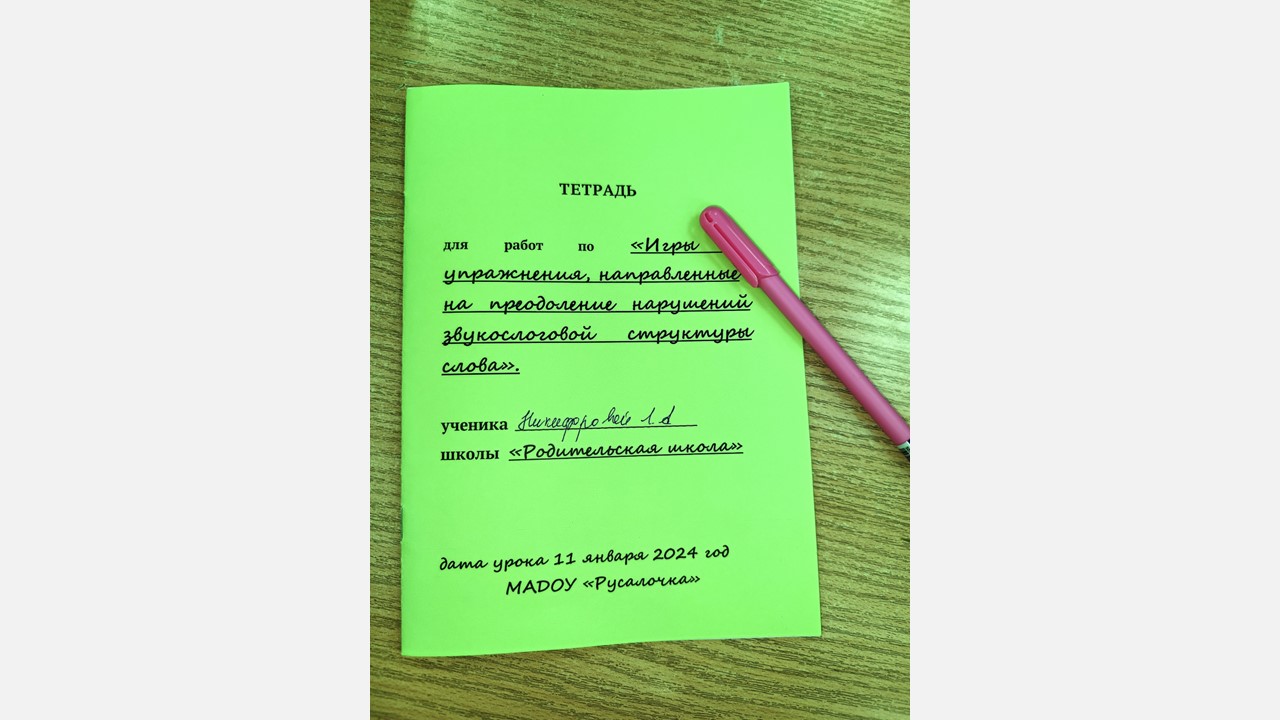 ТЕТРАДЬ
для работ по «Игры
упражнения, направленные
на преодоление нарушений
звукослоговой структуры
слова».
ученика Никифоровой Л.А
школы «Родительская школа»
дата урока 11 января 2024 год
МАДОУ «Русалочка»